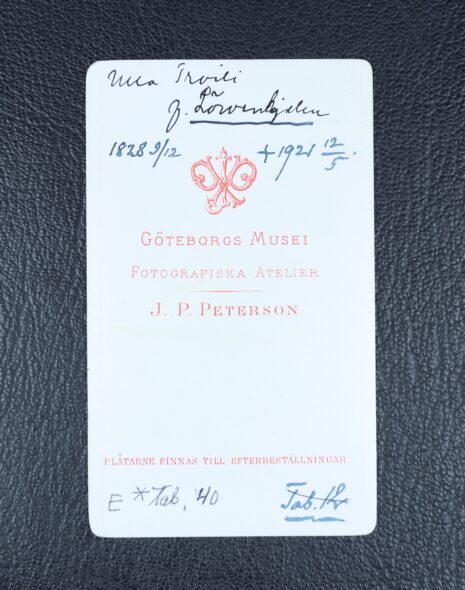 Uca Troili
f. Löwenhjelm
1828 9/12 + 1921 12/5.
GÖTEBORGS MUSEI
FOTOGRAFISKA ATELIER
J. P. PETERSON
PLÅTARNE FINNAS TILL EFTERBESTÄLLNINGAR
E * Tab. '40
Tab.